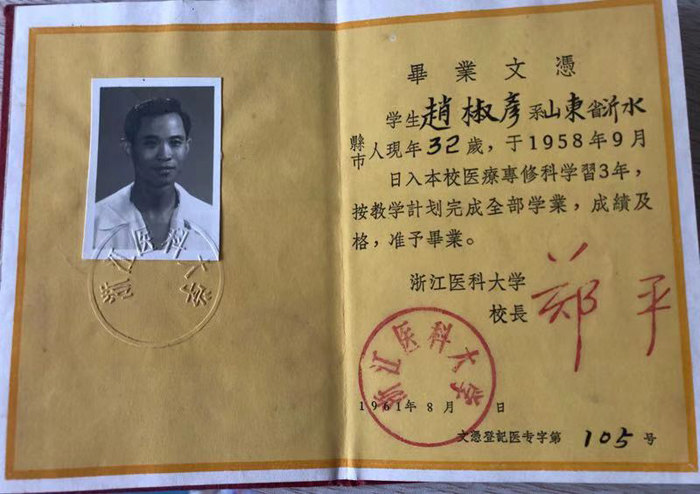 畢業文憑
学生趙椒彦系山東省沂水
縣市人現年32歲，于1958年9月
日入本校医療專修科学習3年，
按教学計划完成全部学業，成績及
格，准予畢業。
浙江医科大学
校長 郑平
浙江医科大学
浙江医科大学
1961年8月 日
文憑登記医专字第 105 号